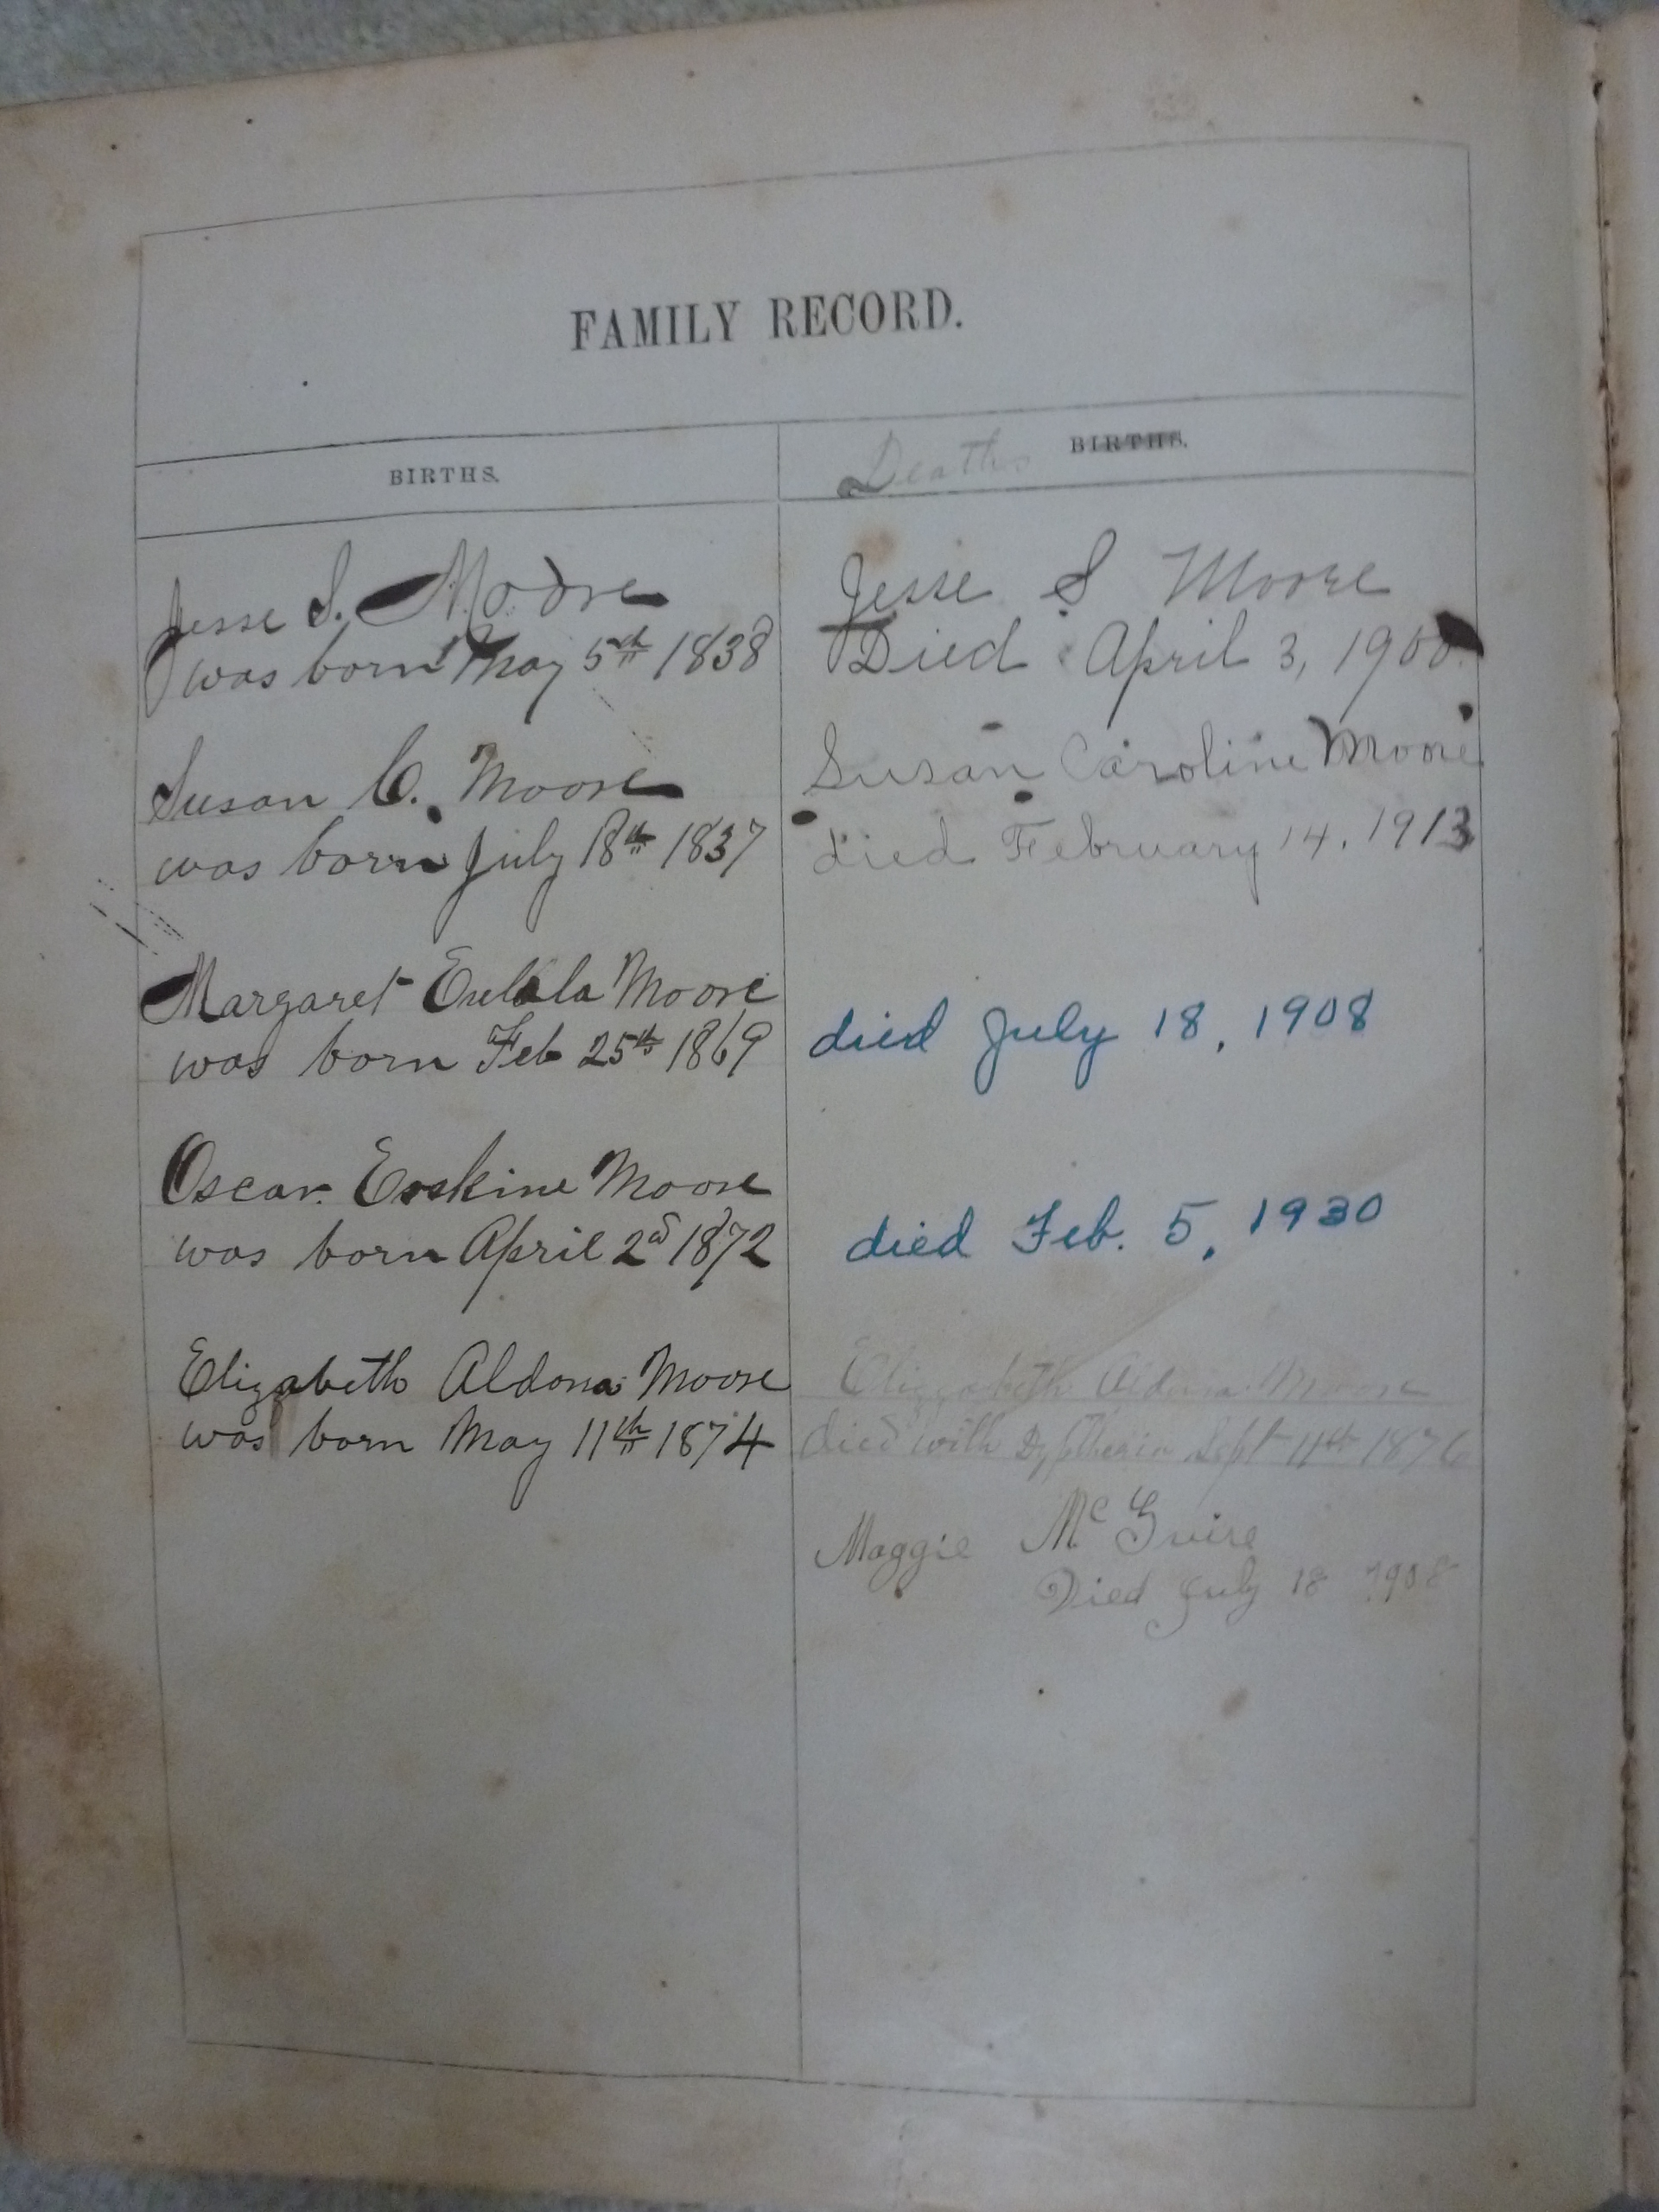 FAMILY RECORD.
BIRTHS.
Jesse S. Moore
was born May 5th 1838
Susan C. Moore
was born July 18th 1837
Margaret Eulala Moore
was born Feb 25th 1869
Oscar. Erskine Moore
was born April 2d 1872
Elizabeth Aldona Moore
was born May 11th 1874
Deaths BIRTHS.
Jesse S Moore
Died April 3, 1900
Susan Caroline Moore
died February 14, 1913
died July 18, 1908
died Feb. 5, 1930
Elizzabeth Aldona Moore
died with Dyptheria Sept 11th 1876
Maggie Mc Guire
Died July 18 1908